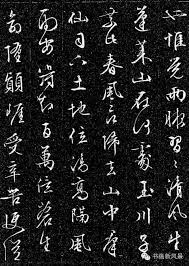 也惟覺兩腋習々清風生
蓬萊山在何處玉川子
乘此春風歸去山中羣
仙司下土地位清高隔風
雨安得知百萬億蒼生
命墮顛崖受辛苦便從
书画新风景